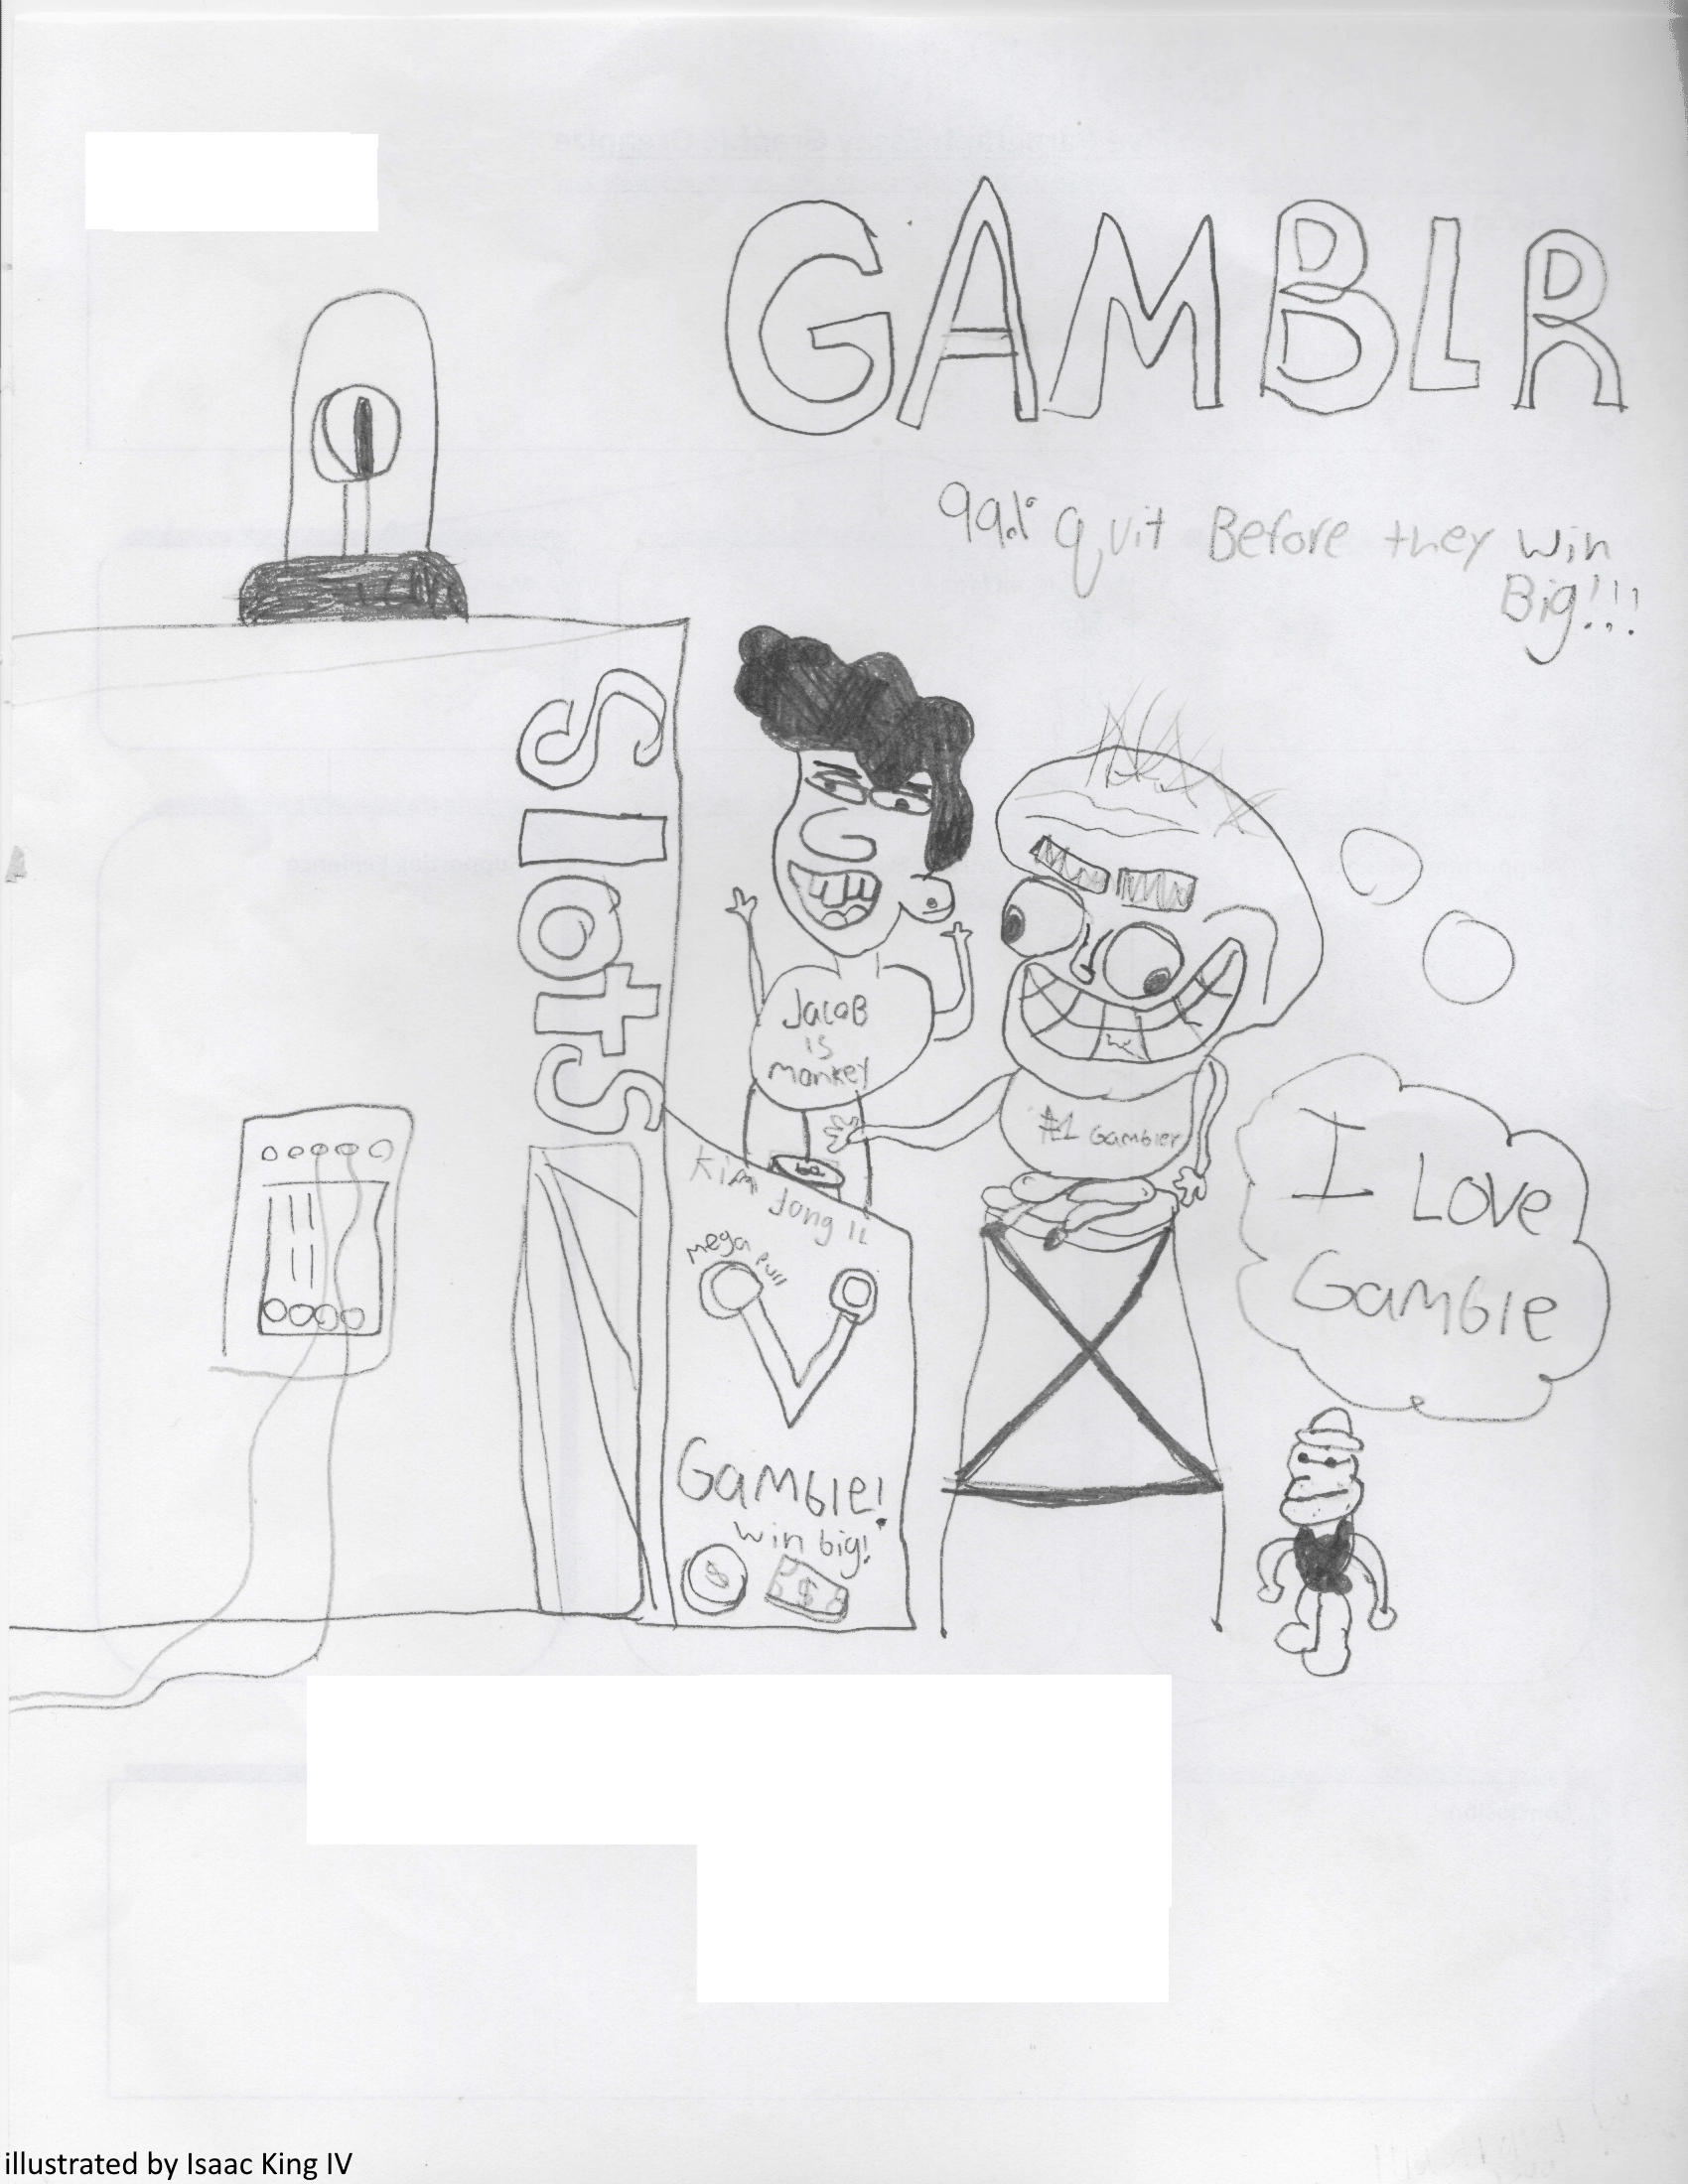 GAMBLR
99% quit Before they win
Big!!!
Slots
Jacob
is
monkey
#1 Gambler
Kim Jong il
mega pull
I Love
Gamble
Gamble!
win big!
$ $
illustrated by Isaac King IV